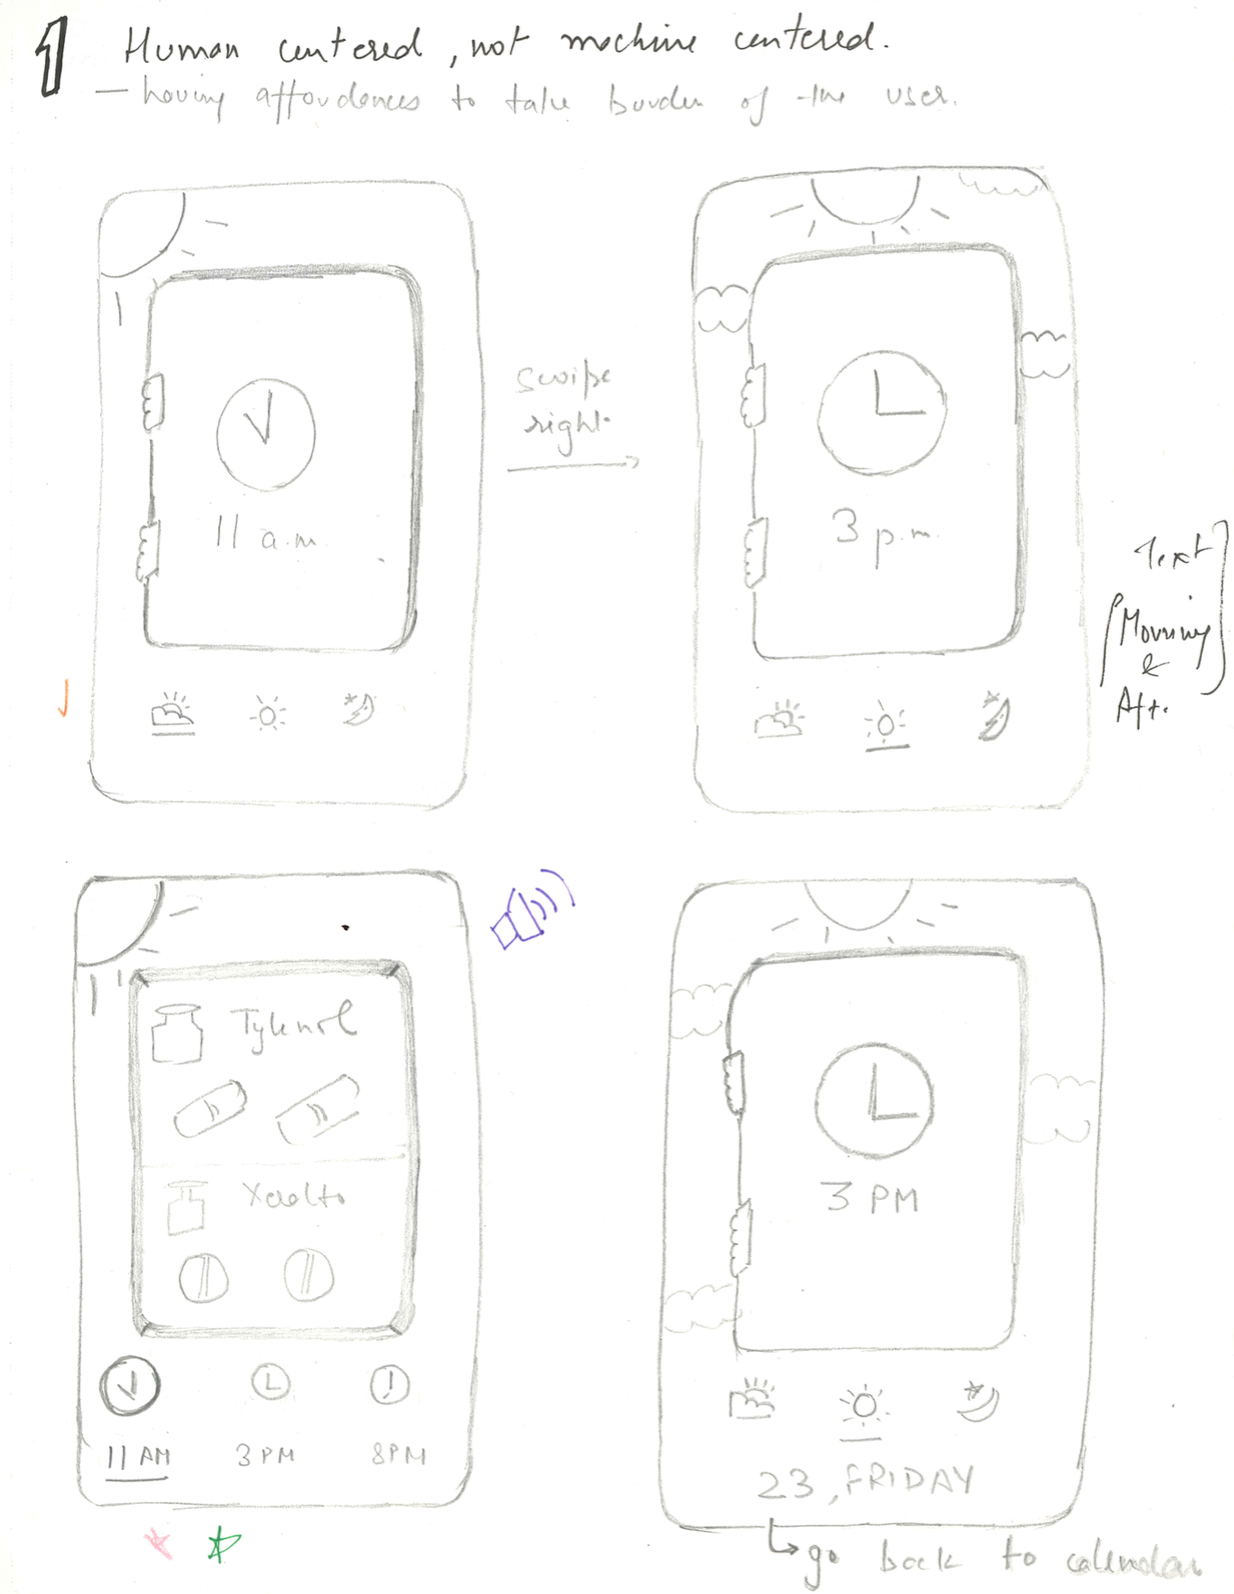 1 Human centered, not machine centered.
— having affordances to take burden of the user.
swipe
right
11 a.m.
3 p.m.
Text
Morning
&
Aft.
Tylenol
Xaralto
3 PM
11 AM 3 PM 8PM
23, FRIDAY
go back to calendar